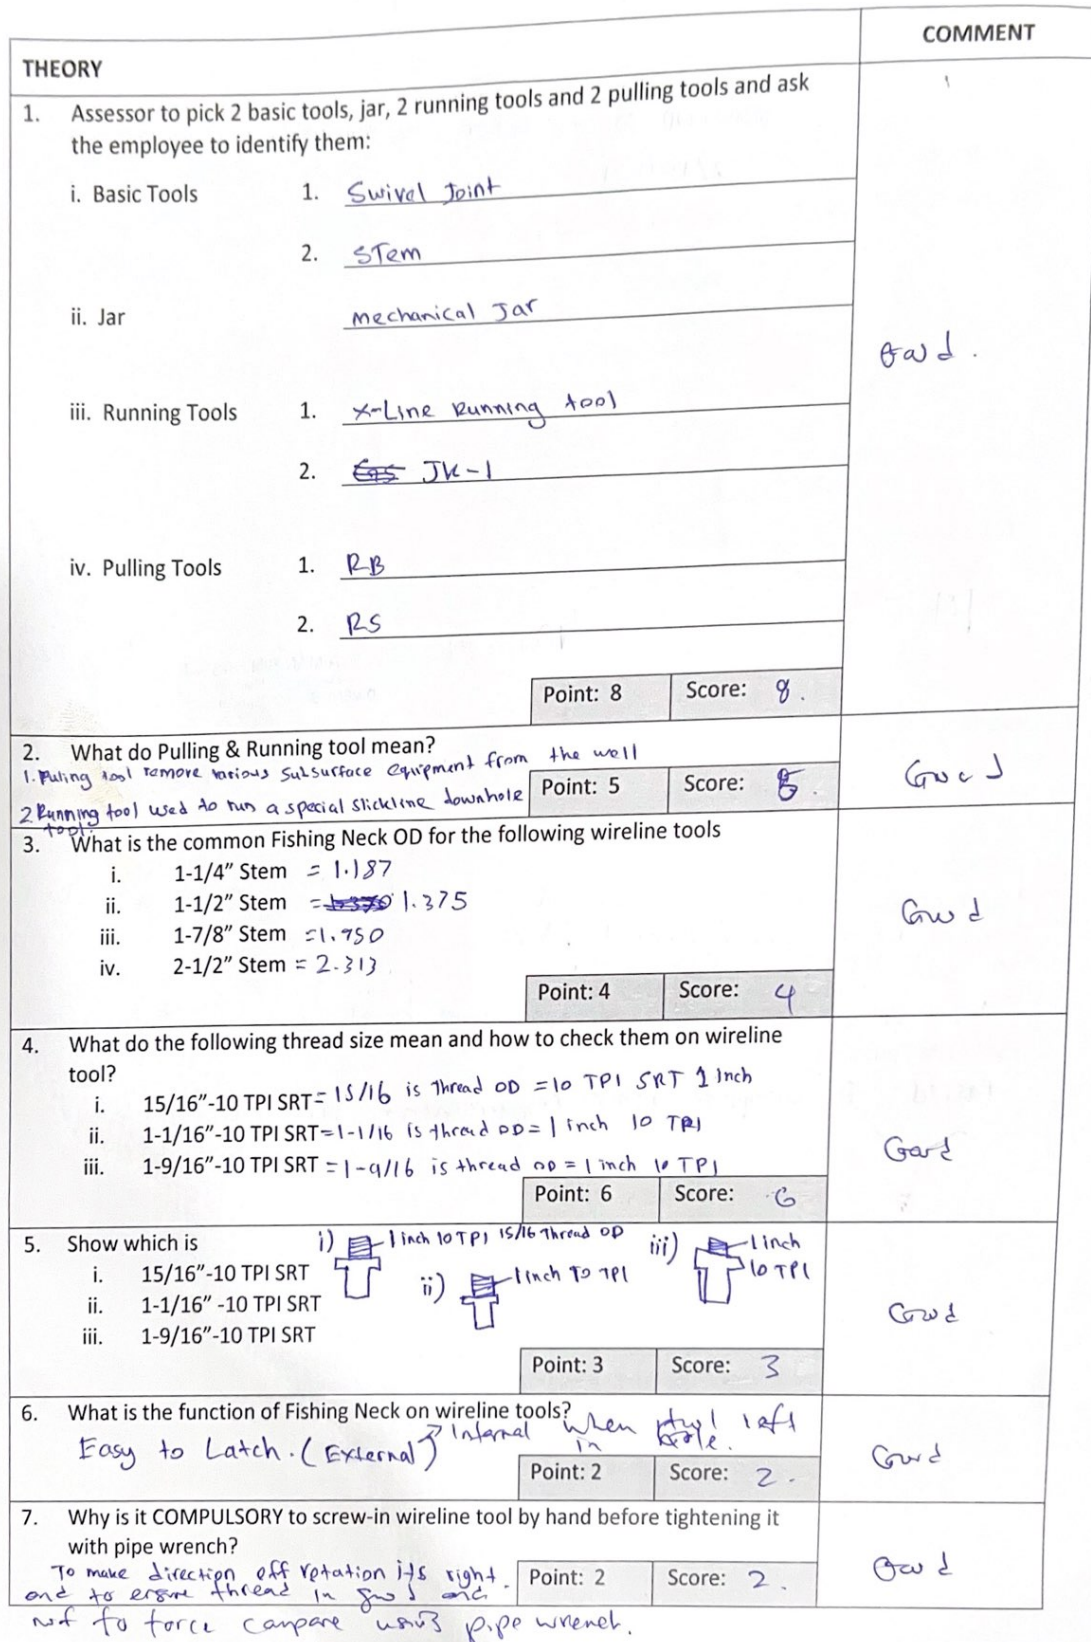 COMMENT
THEORY
1. Assessor to pick 2 basic tools, jar, 2 running tools and 2 pulling tools and ask
the employee to identify them:
i. Basic Tools 1. Swivel Joint
2. STem
ii. Jar mechanical Jar
Good.
iii. Running Tools 1. X-Line Running tool
2. JK-1
iv. Pulling Tools 1. RB
2. RS
Point: 8 Score: 8.
2. What do Pulling & Running tool mean?
1. Pulling tool remove various Subsurface equipment from the well
Point: 5 Score: 5. Good
2 Running tool used to run a special slickline downhole
tool.
3. What is the common Fishing Neck OD for the following wireline tools
i. 1-1/4" Stem = 1.187
ii. 1-1/2" Stem = 1.375 Good
iii. 1-7/8" Stem =1.750
iv. 2-1/2" Stem = 2.313
Point: 4 Score: 4
4. What do the following thread size mean and how to check them on wireline
tool?
i. 15/16"-10 TPI SRT= 15/16 is Thread OD = 10 TPI SRT 1 Inch
ii. 1-1/16"-10 TPI SRT=1-1/16 is thread OD= 1 inch 10 TPI
iii. 1-9/16"-10 TPI SRT = 1-9/16 is thread OD = 1 inch 10 TPI Good
Point: 6 Score: 6
5. Show which is i) 1 inch 10 TPI 15/16 Thread OD iii) 1 inch
10 TPI
i. 15/16"-10 TPI SRT ii) 1 inch 10 TPI
ii. 1-1/16" -10 TPI SRT
iii. 1-9/16"-10 TPI SRT Good
Point: 3 Score: 3
6. What is the function of Fishing Neck on wireline tools?
Easy to Latch. (External) Internal when tool left
in hole. Good
Point: 2 Score: 2.
7. Why is it COMPULSORY to screw-in wireline tool by hand before tightening it
with pipe wrench?
To make direction off rotation its right. Point: 2 Score: 2. Good
and to ensure thread in good and
not to force compare using pipe wrench.